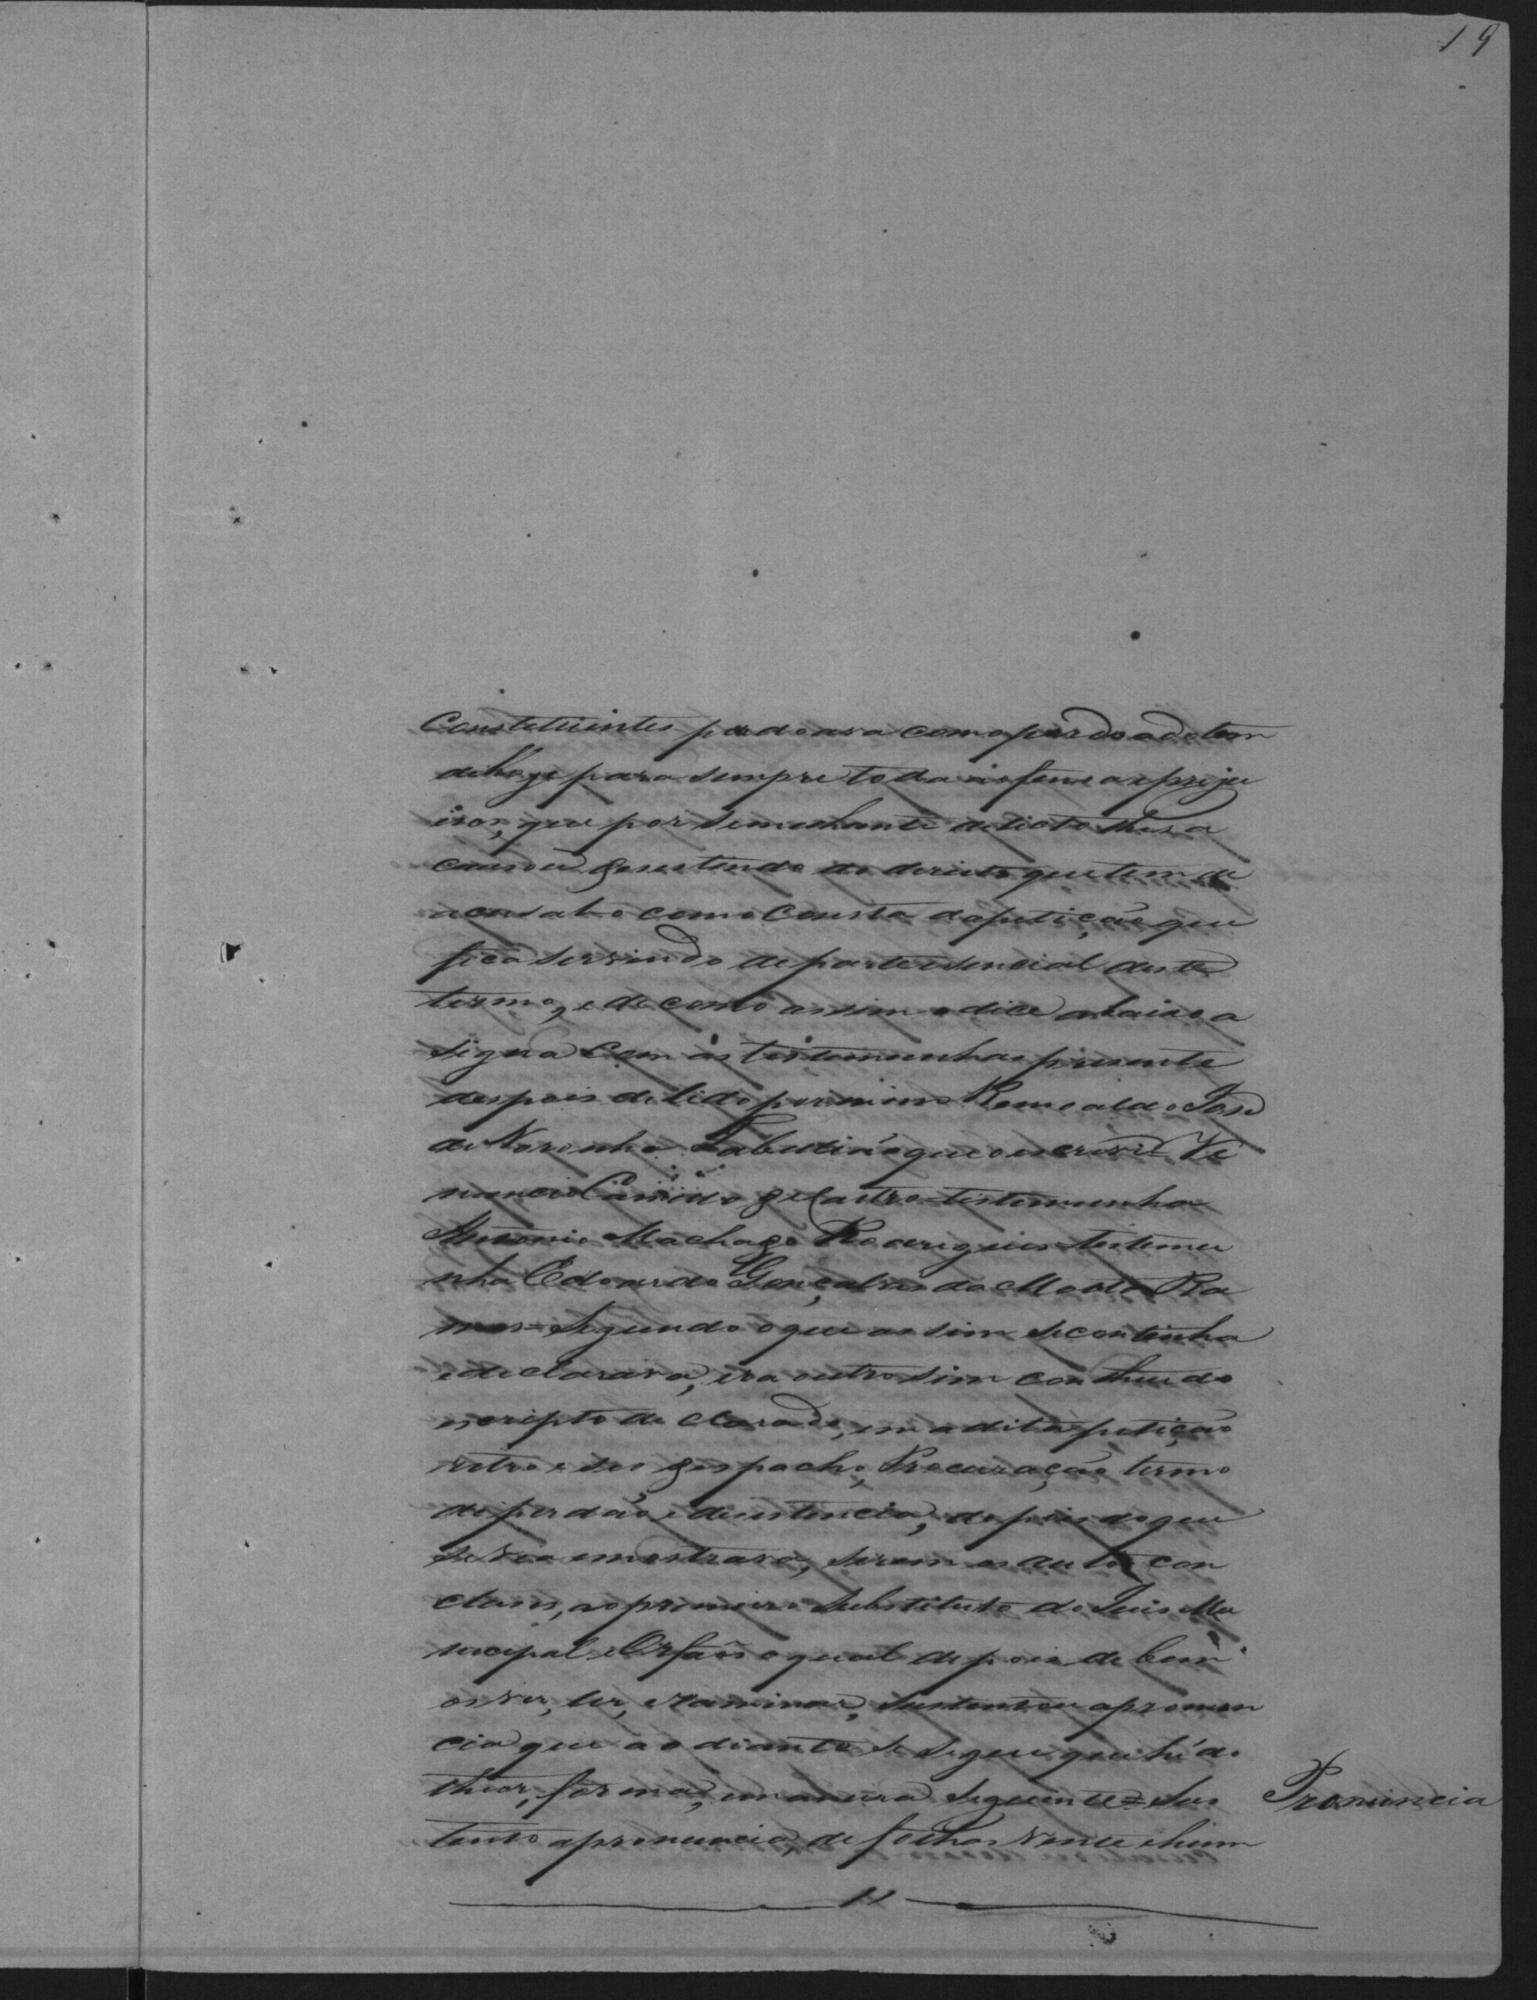 19
Constetuintes perdoava como perdoado tem
de hoje para sempre toda a ofensa e preju
isos, que por semelhante delicto lhes a
causou desestindo do dereito que tem de
acusal-o como Consta da petição que
fica servindo de parte esencial deste
termo, e de como assim o dice abaixo a
signa com as testemunhas presente
despois de lido por mim Romualdo José
de Noronha Tabelião que o escrevi = Ve
nancio Candido de Castro = testemunha
Antonio Machado Rodrigues testemu
nha Edoardo Gonçalves da Motta Ra
mos = Segundo o que assim se continha
e declarava, era outro sim contheudo
escripto de clarado, em a dita petição
retro e seu despacho, Procuração termo
de perdão e desestencia, depois do que
se via e mostrava, serem os autos con
clusos, ao primeiro Substituto do Juis Mu
nicipal e Orfãos o qual depois de bem
os ver, ler, examinar, sustentou a pronun
cia que ao diante se segue que hé do
theor, forma, e maneira seguinte = Sus
Pronuncia
tento a pronuncia de folhas vente e hum